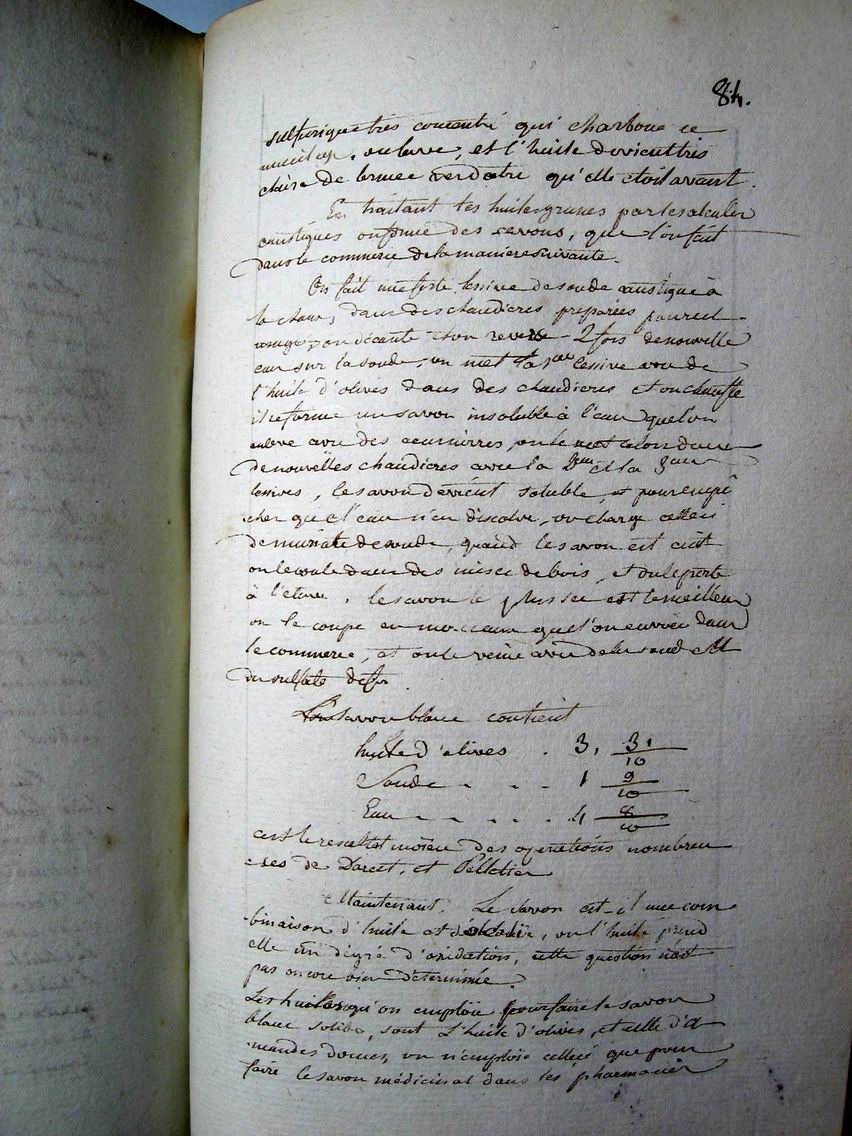 84.
sulfurique très concentré qui charbone ce
mucilage, on lave, et l'huile devient très
claire de brune verdatre qu'elle etoit avant.
En traitant les huiles grasses par les alcalis
caustiques on forme des savons, que l'on fait
dans le commerce de la maniere suivante.
On fait une forte lessive de soude caustique à
la chaux, dans des chaudieres preparées pour cet
usage, on décante et on reverse 2 fois de nouvelle
eau sur la soude, on met la 1ere lessive avec de
l'huile d'olives dans des chaudieres et on chauffe
il se forme un savon insoluble à l'eau que l'on
enleve avec des ecumoires, on le met alors dans
de nouvelles chaudieres avec la 2eme et la 3eme
lessives, le savon devient soluble, et pour empê
cher que l'eau n'en disolve, on charge celle ci
de muriate de soude, quand le savon est cuit
on le coule dans des mises de bois, et on le porte
à l'etuve, le savon le plus sec est le meilleur
on le coupe en morceaux que l'on envoie dans
le commerce, et on le veine avec de la soude et
du sulfate de fer.
Le savon blanc contient
huile d'olives . 3, 3/10
Soude . . . 1 9/10
Eau . . . . 4 8/10
c'est le resultat moïen des operations nombreu
ses de Darcet, et Pelletier
Maintenant. Le savon est-il une com
binaison d'huile et d'alcali, ou l'huile prend
elle un dégré d'oxidation, cette question n'est
pas encore bien determinée.
Les huiles qu'on emploïe pour faire le savon
blanc solide, sont l'huile d'olives, et celle d'a
mandes douces, on n'emploie celle ci que pour
faire le savon médicinal dans les pharmacies